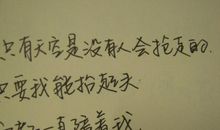 只有天空是没有人会抢走的.
只要我能抬起头
一直陪着我.